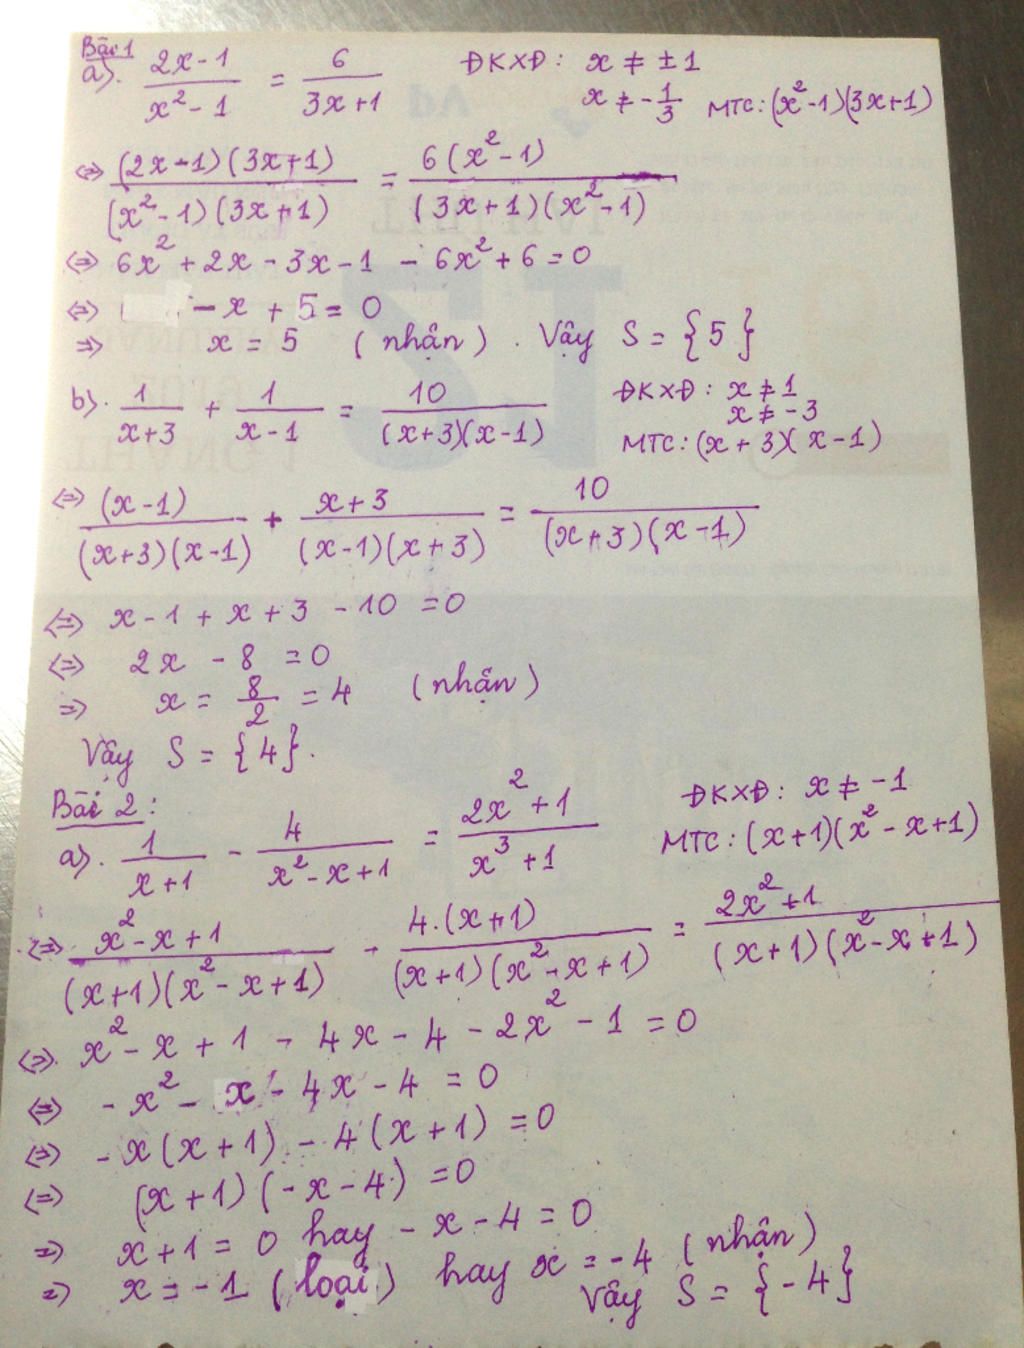 Bài 1
a). (2x-1)/(x²-1) = 6/(3x+1) ĐKXĐ: x ≠ ±1
x ≠ -1/3 MTC: (x²-1)(3x+1)
<=> (2x-1)(3x+1)/(x²-1)(3x+1) = 6(x²-1)/(3x+1)(x²-1)
<=> 6x²+2x-3x-1 - 6x²+6=0
<=> -x + 5 = 0
=> x = 5 (nhận). Vậy S = {5}
b). 1/(x+3) + 1/(x-1) = 10/(x+3)(x-1) ĐKXĐ: x ≠ 1
x ≠ -3
MTC: (x+3)(x-1)
<=> (x-1)/(x+3)(x-1) + x+3/(x-1)(x+3) = 10/(x+3)(x-1)
<=> x-1 + x + 3 - 10 = 0
<=> 2x - 8 = 0
=> x = 8/2 = 4 (nhận)
Vậy S = {4}.
Bài 2:
a). 1/(x+1) - 4/(x²-x+1) = (2x²+1)/(x³+1) ĐKXĐ: x ≠ -1
MTC: (x+1)(x²-x+1)
<=> x²-x+1/(x+1)(x²-x+1) - 4.(x+1)/(x+1)(x²-x+1) = 2x²+1/(x+1)(x²-x+1)
<=> x²-x+1 - 4x-4-2x²-1 = 0
<=> -x²-x-4x-4 = 0
<=> -x(x+1) - 4(x+1) = 0
<=> (x+1)(-x-4) = 0
=> x+1 = 0 hay -x-4 = 0
=> x = -1 (loại) hay x = -4 (nhận)
Vậy S = {-4}